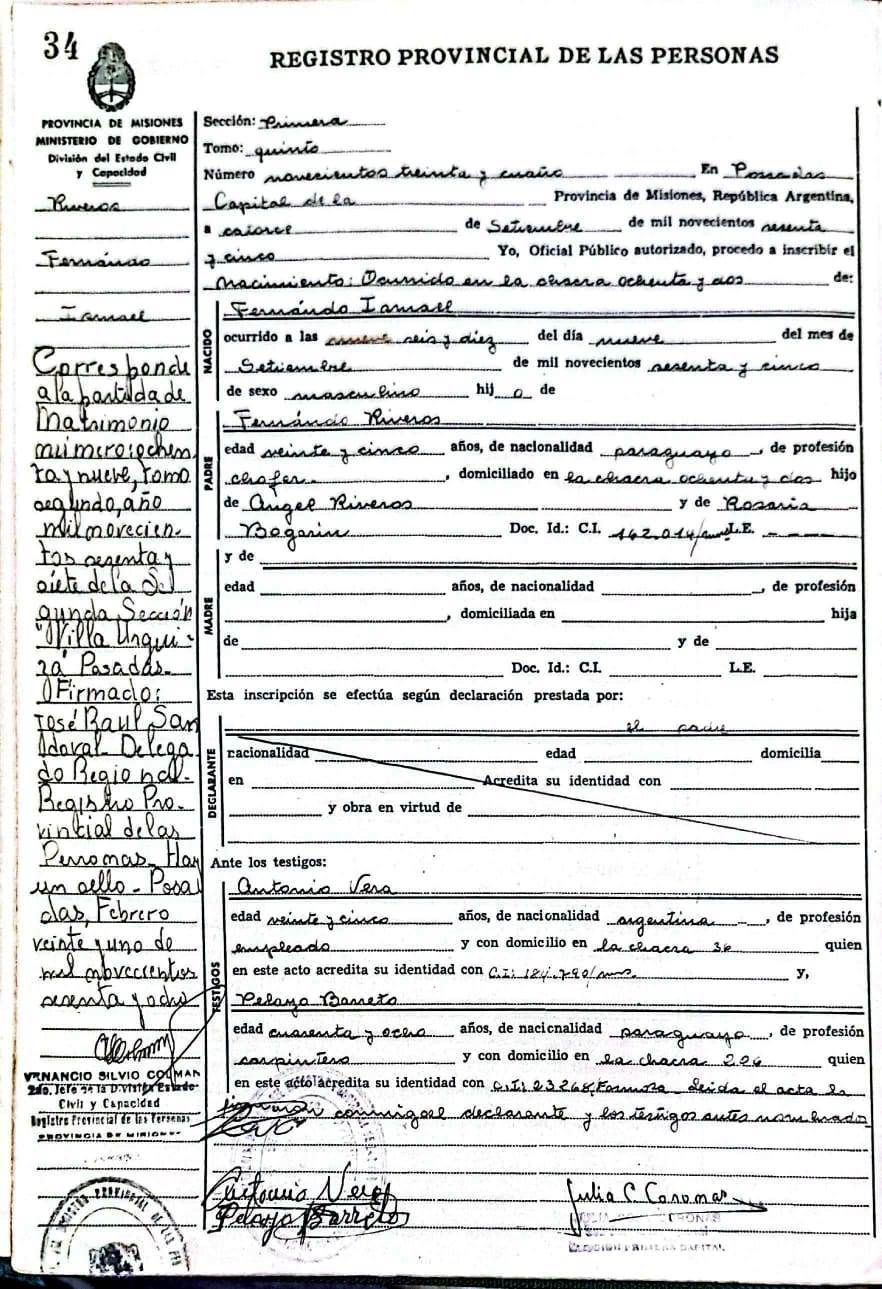 34
REGISTRO PROVINCIAL DE LAS PERSONAS
PROVINCIA DE MISIONES
MINISTERIO DE GOBIERNO
División del Estado Civil
y Capacidad
Riveros
Fernándo
Ismael
Corresponde
a la partida de
Matrimonio
número: ochen
ta y nueve, tomo
segundo, año
mil novecien-
tos sesenta y
siete de la Se
gunda Sección
"Villa Urqui-
za" Posadas-
Firmado:
José Raul San
doval- Delega
do Regional-
Registro Pro-
vincial de las
Personas- Hay
un sello- Posa
das, Febrero
veinte y uno de
mil novecientos
sesenta y ocho
VENANCIO SILVIO COLMAN
2do. Jefe de la División Estado
Civil y Capacidad
Registro Provincial de las Personas
PROVINCIA DE MISIONES
Sección: Primera
Tomo: quinto
Número novecientos treinta y cuatro En Posadas
Capital de la Provincia de Misiones, República Argentina,
a catorce de Setiembre de mil novecientos sesenta
y cinco Yo, Oficial Público autorizado, procedo a inscribir el
nacimiento: Ocurrido en la chacra ochenta y dos de:
NACIDO
Fernándo Ismael
ocurrido a las seis y diez del día nueve del mes de
Setiembre de mil novecientos sesenta y cinco
de sexo masculino hij o de
PADRE
Fernándo Riveros
edad veinte y cinco años, de nacionalidad paraguayo, de profesión
chofer, domiciliado en la chacra ochenta y dos hijo
de Angel Riveros y de Rosaria
Bogarin Doc. Id.: C.I. 162.014/ L.E. -
y de
MADRE
edad años, de nacionalidad, de profesión
, domiciliada en hija
de y de
Doc. Id.: C.I. L.E.
Esta inscripción se efectúa según declaración prestada por:
el padre
DECLARANTE
nacionalidad edad domicilia
en Acredita su identidad con
y obra en virtud de
Ante los testigos:
TESTIGOS
Antonio Vera
edad veinte y cinco años, de nacionalidad argentina, de profesión
empleado y con domicilio en la chacra 36 quien
en este acto acredita su identidad con C.I: 184.790/mns. y,
Pelayo Barreto
edad cuarenta y ocho años, de nacionalidad paraguayo, de profesión
carpintero y con domicilio en la chacra 226 quien
en este acto acredita su identidad con C.I: 23268/Formosa Leida el acta la
conmigo el declarante y los testigos antes nombrado
Antonio Vera
Pelayo Barreto
Julia C. Coronas